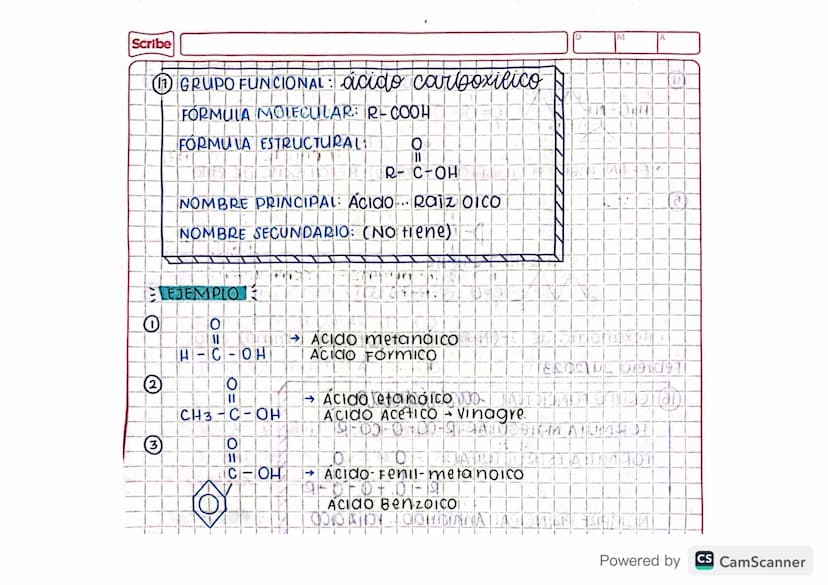 Scribe
D M A
17 GRUPO FUNCIONAL: ácido carboxilico
FÓRMULA MOLECULAR: R-COOH
FÓRMULA ESTRUCTURAL:
O
||
R- C-OH
NOMBRE PRINCIPAL: ÁCIDO... Raiz OICO
NOMBRE SECUNDARIO: (No tiene)
EJEMPLO
1
O
||
H - C - OH → Ácido metanóico
Ácido Fórmico
2
O
||
CH3 - C - OH → Ácido etanóico
Ácido Acético → Vinagre
3
O
||
C - OH → Ácido-Fenil-metanoico
Ácido Benzoico
Powered by CS CamScanner